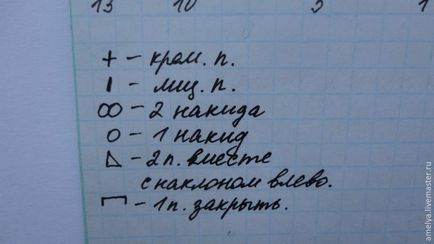 13 10 5 1
+ - кром. п.
| - лиц. п.
∞ - 2 накида
○ - 1 накид
◺ - 2 п. вместе
с наклоном влево.
⊓ - 1 п. закрыть.
amelya.livemaster.ru